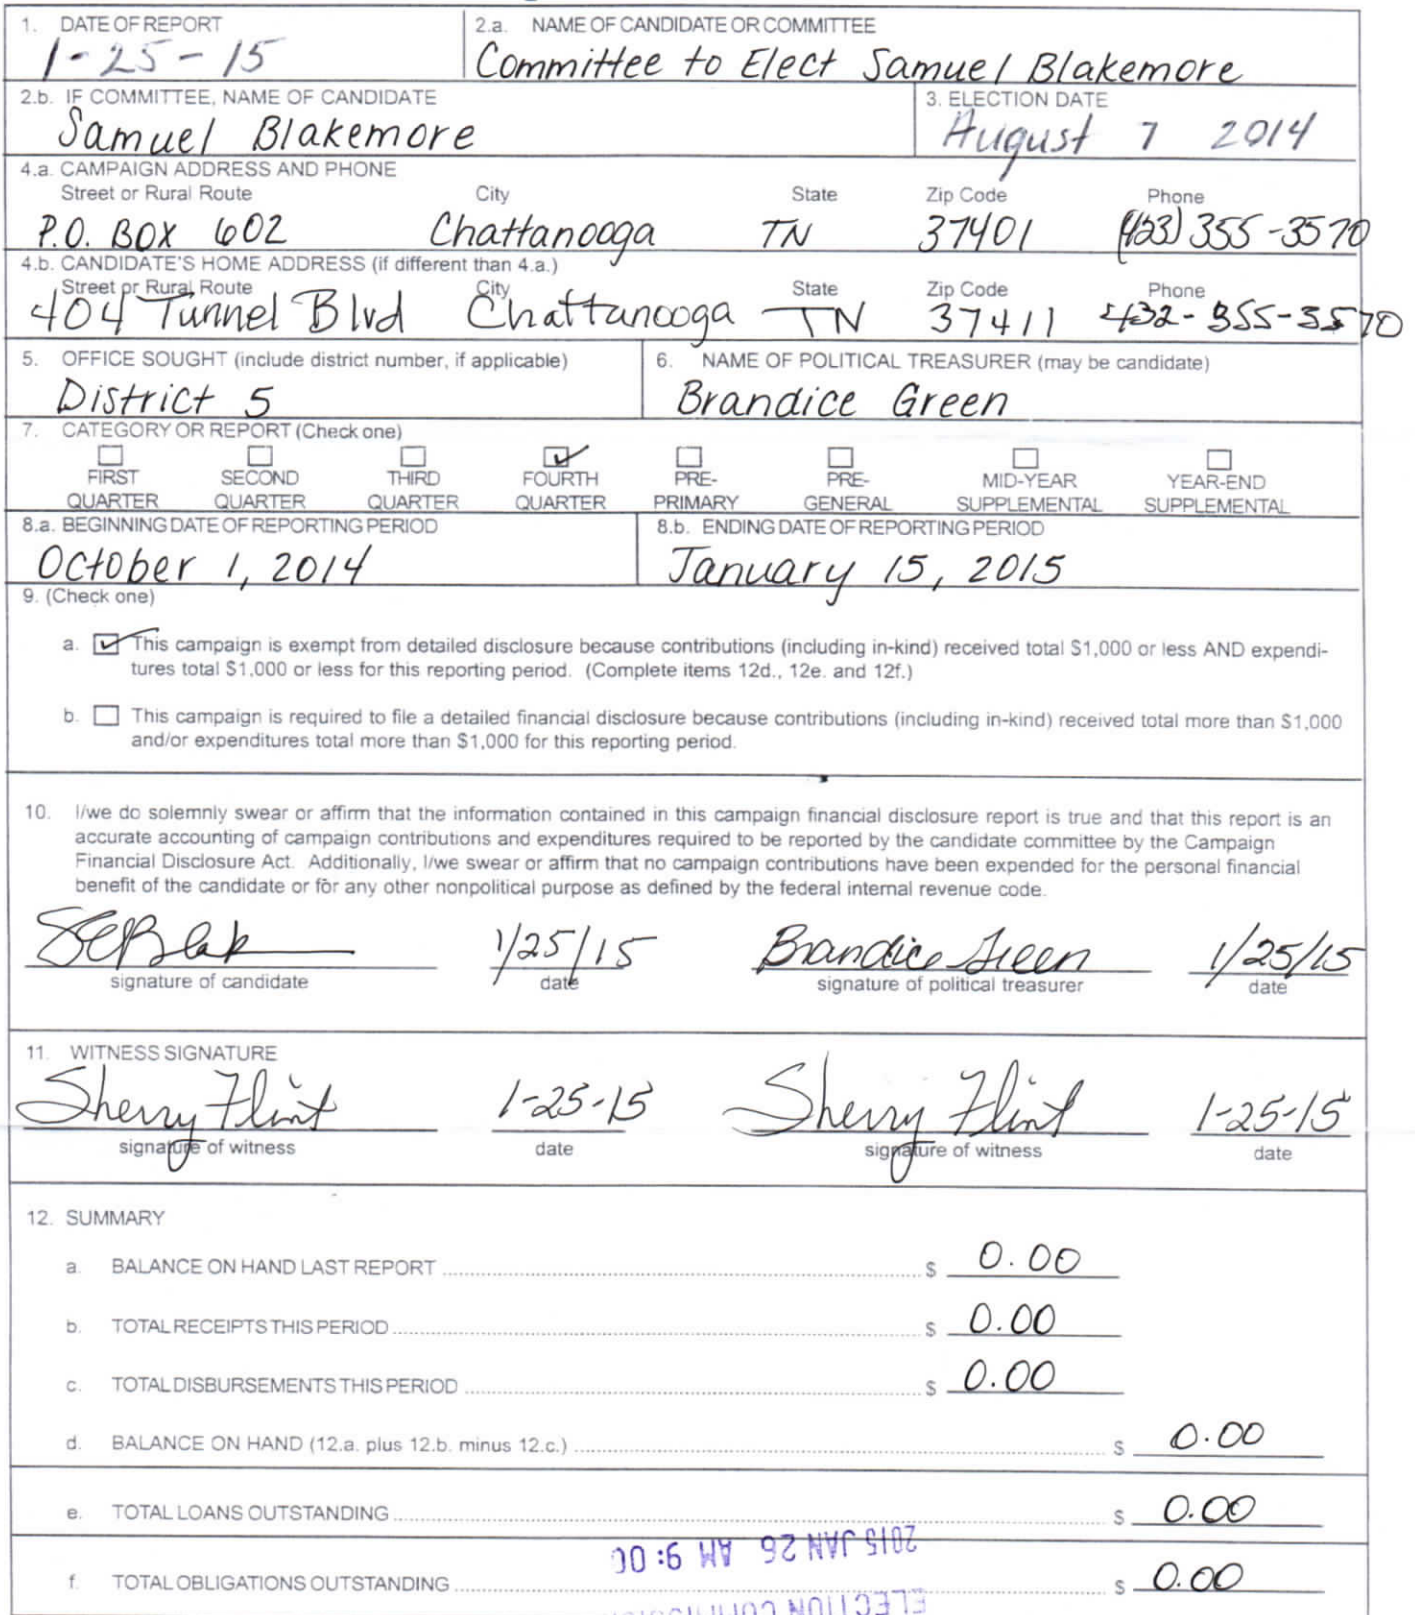 1. DATE OF REPORT
1-25-15
2.a. NAME OF CANDIDATE OR COMMITTEE
Committee to Elect Samuel Blakemore
2.b. IF COMMITTEE, NAME OF CANDIDATE
Samuel Blakemore
3. ELECTION DATE
August 7 2014
4.a. CAMPAIGN ADDRESS AND PHONE
Street or Rural Route City State Zip Code Phone
P.O. BOX 602 Chattanooga TN 37401 (423) 355-3570
4.b. CANDIDATE'S HOME ADDRESS (if different than 4.a.)
Street or Rural Route City State Zip Code Phone
404 Tunnel Blvd Chattanooga TN 37411 432-355-3570
5. OFFICE SOUGHT (include district number, if applicable)
District 5
6. NAME OF POLITICAL TREASURER (may be candidate)
Brandice Green
7. CATEGORY OR REPORT (Check one)
FIRST SECOND THIRD FOURTH PRE- PRE- MID-YEAR YEAR-END
QUARTER QUARTER QUARTER QUARTER PRIMARY GENERAL SUPPLEMENTAL SUPPLEMENTAL
8.a. BEGINNING DATE OF REPORTING PERIOD
October 1, 2014
8.b. ENDING DATE OF REPORTING PERIOD
January 15, 2015
9. (Check one)
a. This campaign is exempt from detailed disclosure because contributions (including in-kind) received total $1,000 or less AND expendi-
tures total $1,000 or less for this reporting period. (Complete items 12d., 12e. and 12f.)
b. This campaign is required to file a detailed financial disclosure because contributions (including in-kind) received total more than $1,000
and/or expenditures total more than $1,000 for this reporting period.
10. I/we do solemnly swear or affirm that the information contained in this campaign financial disclosure report is true and that this report is an
accurate accounting of campaign contributions and expenditures required to be reported by the candidate committee by the Campaign
Financial Disclosure Act. Additionally, I/we swear or affirm that no campaign contributions have been expended for the personal financial
benefit of the candidate or for any other nonpolitical purpose as defined by the federal internal revenue code.
1/25/15 Brandice Green 1/25/15
signature of candidate date signature of political treasurer date
11. WITNESS SIGNATURE
Sherry Flint 1-25-15 Sherry Flint 1-25-15
signature of witness date signature of witness date
12. SUMMARY
a. BALANCE ON HAND LAST REPORT $ 0.00
b. TOTAL RECEIPTS THIS PERIOD $ 0.00
c. TOTAL DISBURSEMENTS THIS PERIOD $ 0.00
d. BALANCE ON HAND (12.a. plus 12.b. minus 12.c.) $ 0.00
e. TOTAL LOANS OUTSTANDING $ 0.00
2015 JAN 26 AM 9:00
f. TOTAL OBLIGATIONS OUTSTANDING $ 0.00
ELECTION